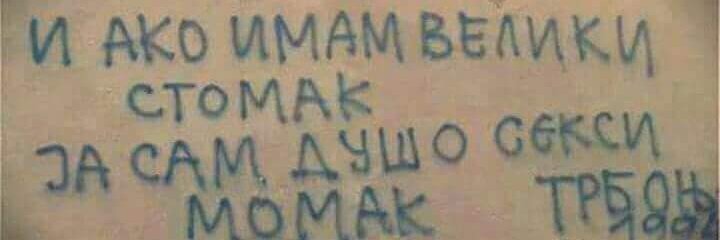 И АКО ИМАМ ВЕЛИКИ
СТОМАК
ЈА САМ ДУШО СЕКСИ
МОМАК ТРБОЊ